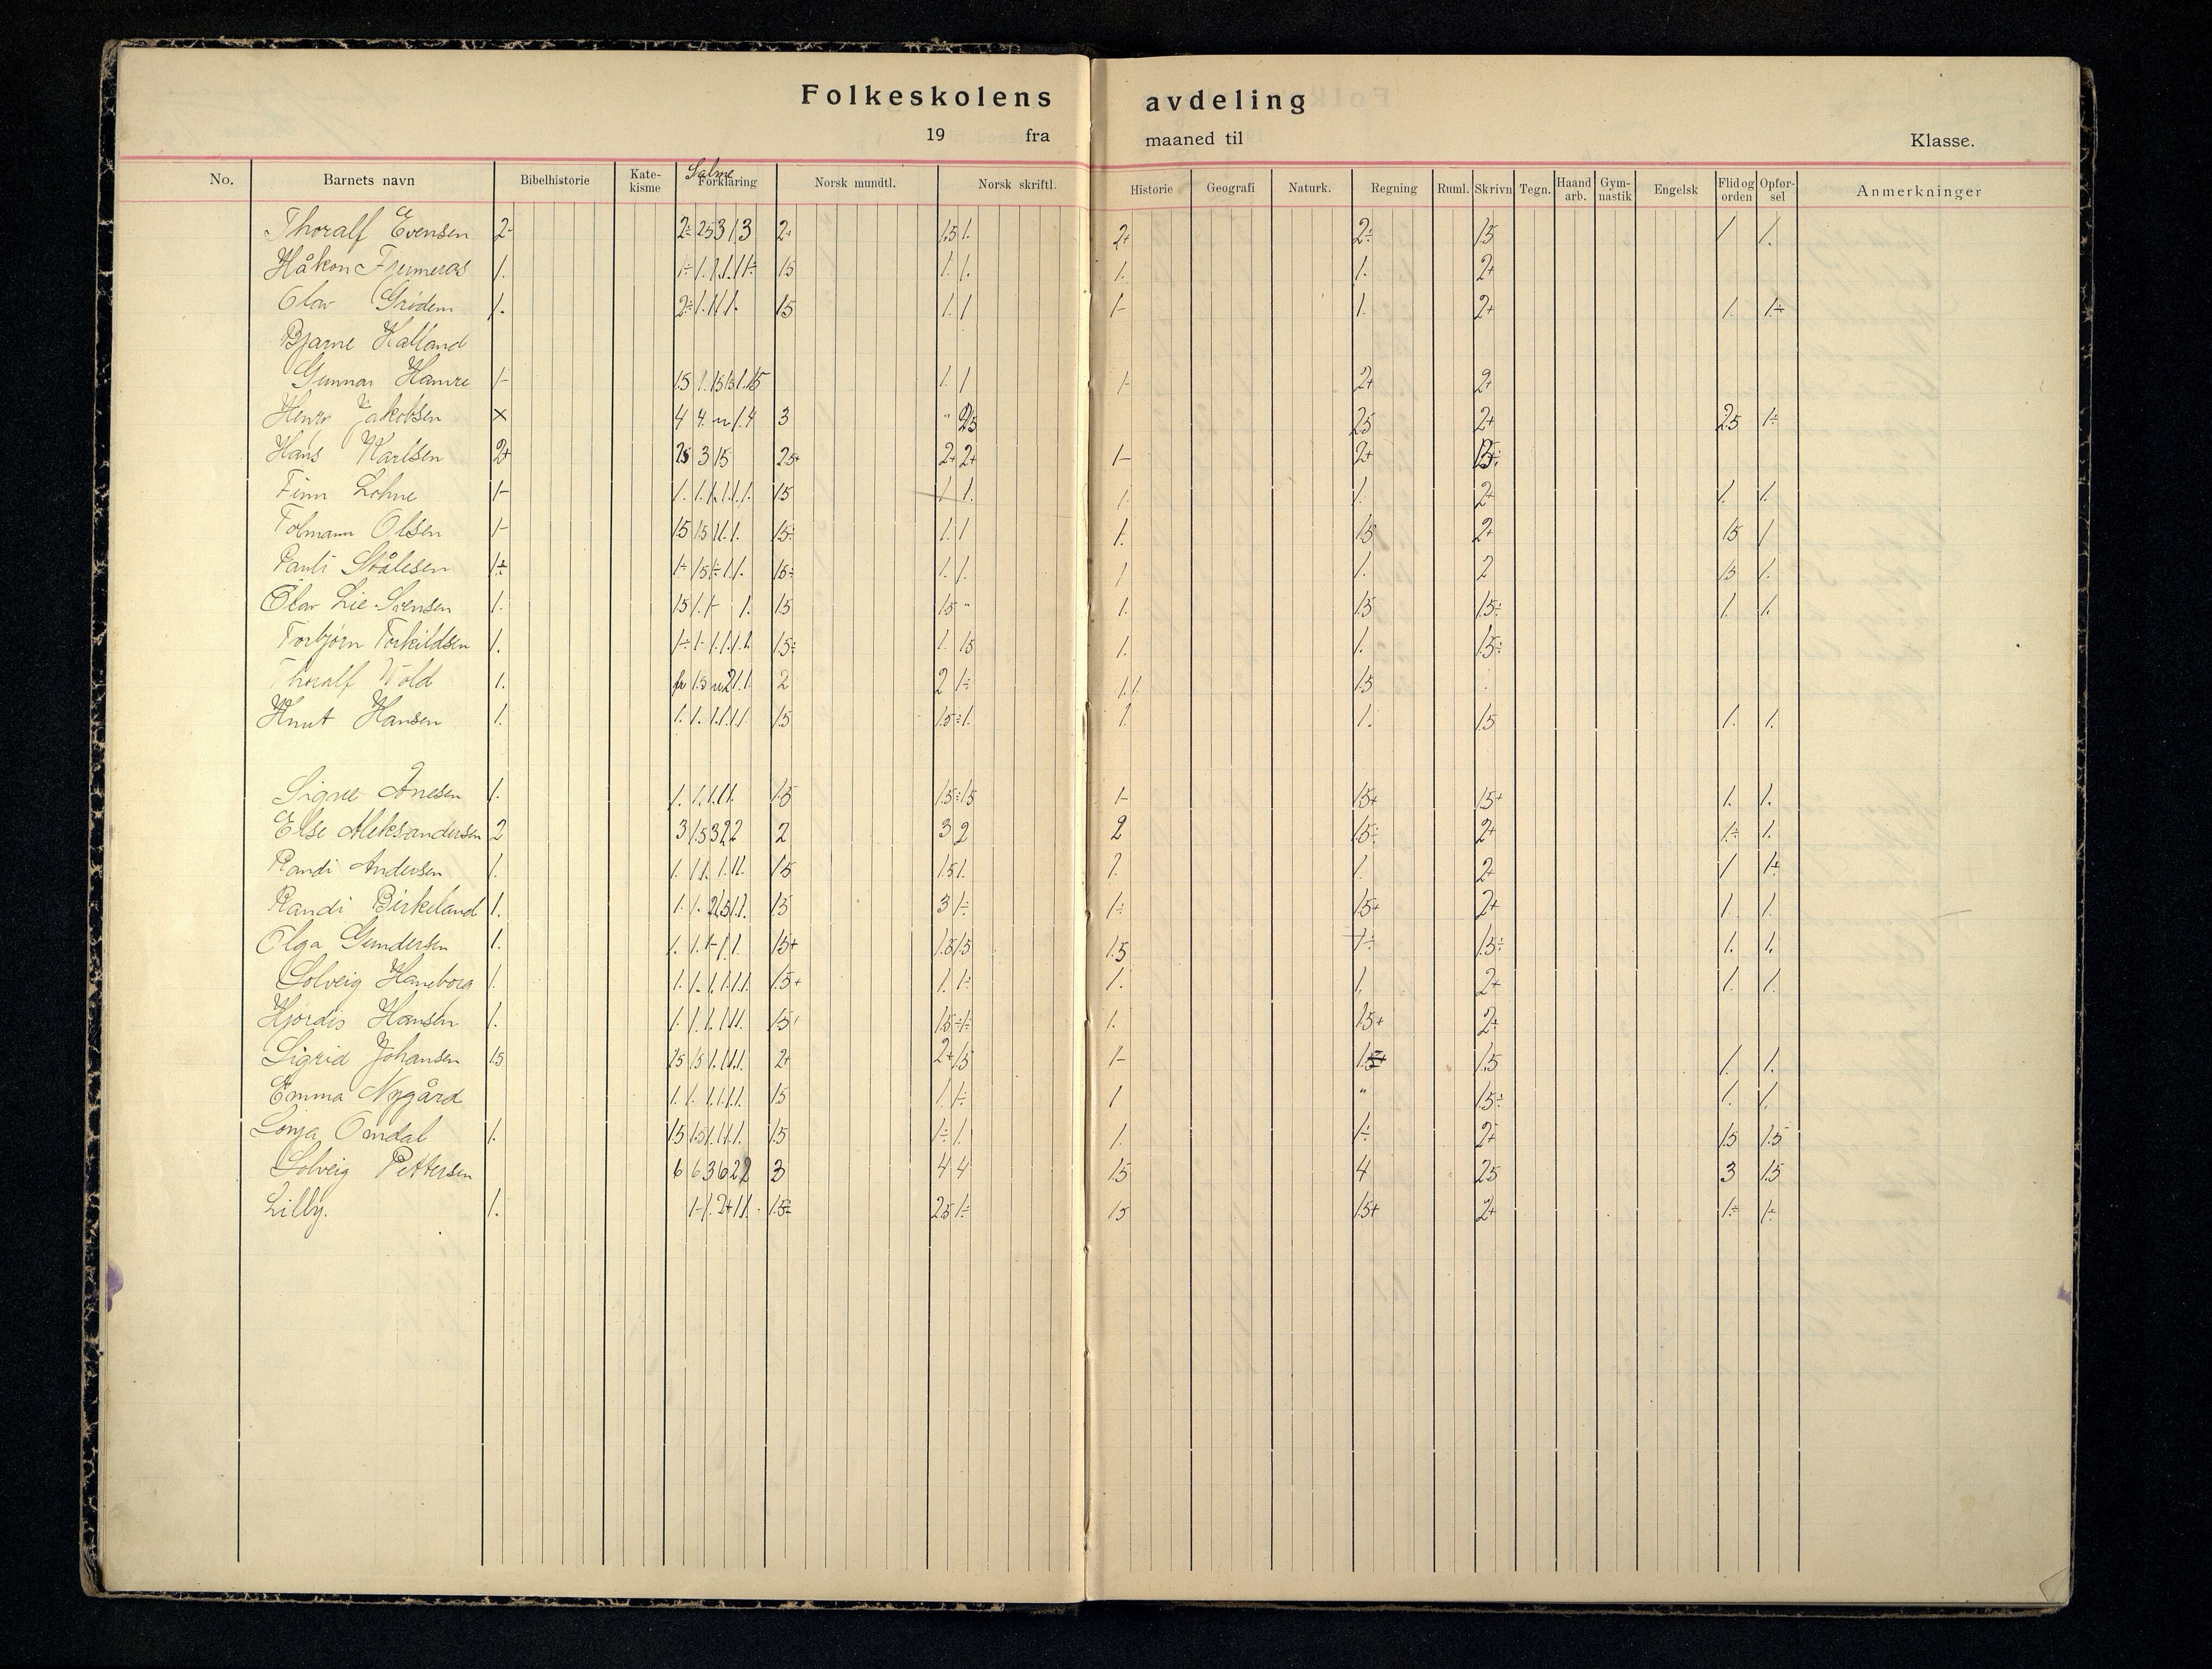 Folkeskolens avdeling
19 fra maaned til Klasse.
No. Barnets navn Bibelhistorie Kate-kisme Salme Forklaring Norsk mundtl. Norsk skriftl. Historie Geografi Naturk. Regning Ruml. Skrivn Tegn. Haand arb. Gym-nastik Engelsk Flid og orden Opførsel Anmerkninger
Thoralf Evensen 2- 2÷ 25 3 1 3 2+ 1.5 1. 2+ 2÷ 1.5 1 1.
Håkon 1. 1÷ 1. 1. 1. 1 1÷ 15 1. 1. 1. 1. 2+
Olav 1. 2÷ 1. 1 1 1. 15 1. 1 1- 1. 2+ 1. 1÷
Bjarne Halland
Gunnar Hamre 1- 15 1. 15 15 1. 15 1. 1 1- 2+ 2+
Henry Jakobsen × 4 4. " 1. 4 3 " 25 25 2+ 2.5 1÷
Hans Karlsen 2+ 25 3 15 25+ 2+ 2+ 1- 2+
Finn Lohne 1- 1. 1. 1. 1. 1. 1. 15 1 1. 1. 1. 2+ 1. 1.
Tolmann Olsen 1- 15 15 1 1. 1. 15÷ 1. 1 1. 15 2+ 15 1
Pauli Stålesen 1÷ 1÷ 15 1÷ 1. 1. 15÷ 1. 1. 1 1. 2 15 1.
Olav Lie Svensen 1. 15 1. 1- 1. 15 15 " 1. 15 15÷ 1. 1.
Torbjørn Torkildsen 1. 1÷ 1- 1. 1. 1. 1. 15÷ 1. 15 1. 1. 15÷
Thoralf Wold 1. fr 1.5 " 2 1. 1. 2 2 1÷ 1. 1. 1.5
Knut Hansen 1. 1. 1. 1. 1. 1. 1 15 1.5÷ 1. 1. 1. 15 1. 1.
Signe Anesen 1. 1. 1. 1. 1 1. 1.5 1.5÷ 15 1- 15+ 15+ 1. 1.
Else Aleksandersen 2 3 1.5 3 2 2 2 3 2 2 1.5÷ 2+ 1÷ 1.
Randi Andersen 1. 1. 1 1. 1. 1 1. 15 15 1. 1. 1. 2+ 1 1+
Randi Birkeland 1. 1. 1. 2 1.5 1 1. 15 3 1÷ 1÷ 15+ 2+ 1. 1.
Olga Gundersen 1. 1. 1. 1- 1 1. 15+ 1.5 15 1.5 1÷ 15÷ 1. 1.
Solveig Haneborg 1. 1. 1. 1. 1. 1. 1. 1.5+ 1. 1÷ 1. 1. 2+ 1. 1.
Hjordis Hansen 1. 1. 1. 1. 1. 1 1. 15+ 15÷ 1÷ 1. 15+ 2+
Sigrid Johansen 15 25 15 1. 1. 1 1. 2+ 2+ 15 1- 1.5 1. 1.
Emma Nygård 1. 1. 1. 1. 1. 1. 15 1. 1÷ 1 " 15÷ 1. 1.
Sonja Omdal 1. 15 1.5 1. 1. 1. 1. 15 1÷ 1. 1. 1÷ 2+ 15 1.5
Solveig Pettersen 6 6 3 6 2 2 3 4 4 15 4 25 3 15
Lilly. 1. 1- 1. 2+ 1 1. 1.5÷ 25 1÷ 15 15+ 2+ 1÷ 1÷